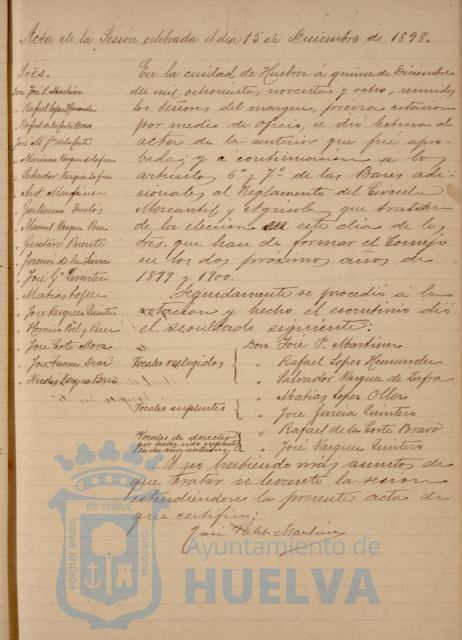 Acta de la Sesion celebrada el dia 15 de Diciembre de 1898.
Sres.
Don José P. Martinez
" Rafael Lopez Hernandez
" Rafael de la Corte Bravo
" José M.ª de la Corte
" Mariano Vazquez de Zafra
" Salvador Vazquez de Zafra
" Ant. Marquez
" Guillermo Duclós
" Manuel Vazquez Perez
" Gustavo Puente
" Fermin de la Sierra
" José G.ª Quintero
" Matias Lopez
" José Vazquez Quintero
" Horacio Bel y Perez
" José Coto Mora
" José Suarez Diaz
" Nicolas Vazquez
En la ciudad de Huelva á quince de Diciembre
de mil ochocientos noventa y ocho, reunidos
los señores del margen, prévia citacion
por medio de oficio, se dió lectura al
acta de la anterior que fué apro-
bada; y a continuacion á los
articulos 6º y 7º de las Bases adi-
cionales al Reglamento del Circulo
Mercantil y Agrícola, que tratan
de la eleccion en este dia de los
Sres. que han de formar el Consejo
en los dos próximos años de
1899 y 1900.
Seguidamente se procedió á la
votacion y hecho el escrutinio dió
el resultado siguiente:
Vocales reelegidos { Don José P. Martinez
" Rafael Lopez Hernandez
" Salvador Vazquez de Zafra
" Matias Lopez Oller
Vocales suplentes { " José Garcia Quintero
" Rafael de la Corte Bravo
Vocales de derecho por haber sido suplentes los dos años anteriores { " José Vazquez Quintero
Y no habiendo más asuntos de
que tratar se levantó la sesion
estendiendose la presente acta de
que certifico:
José Pablo Martinez
PORTUS MARIS ET TERRAE CUSTODIA
Ayuntamiento de
HUELVA